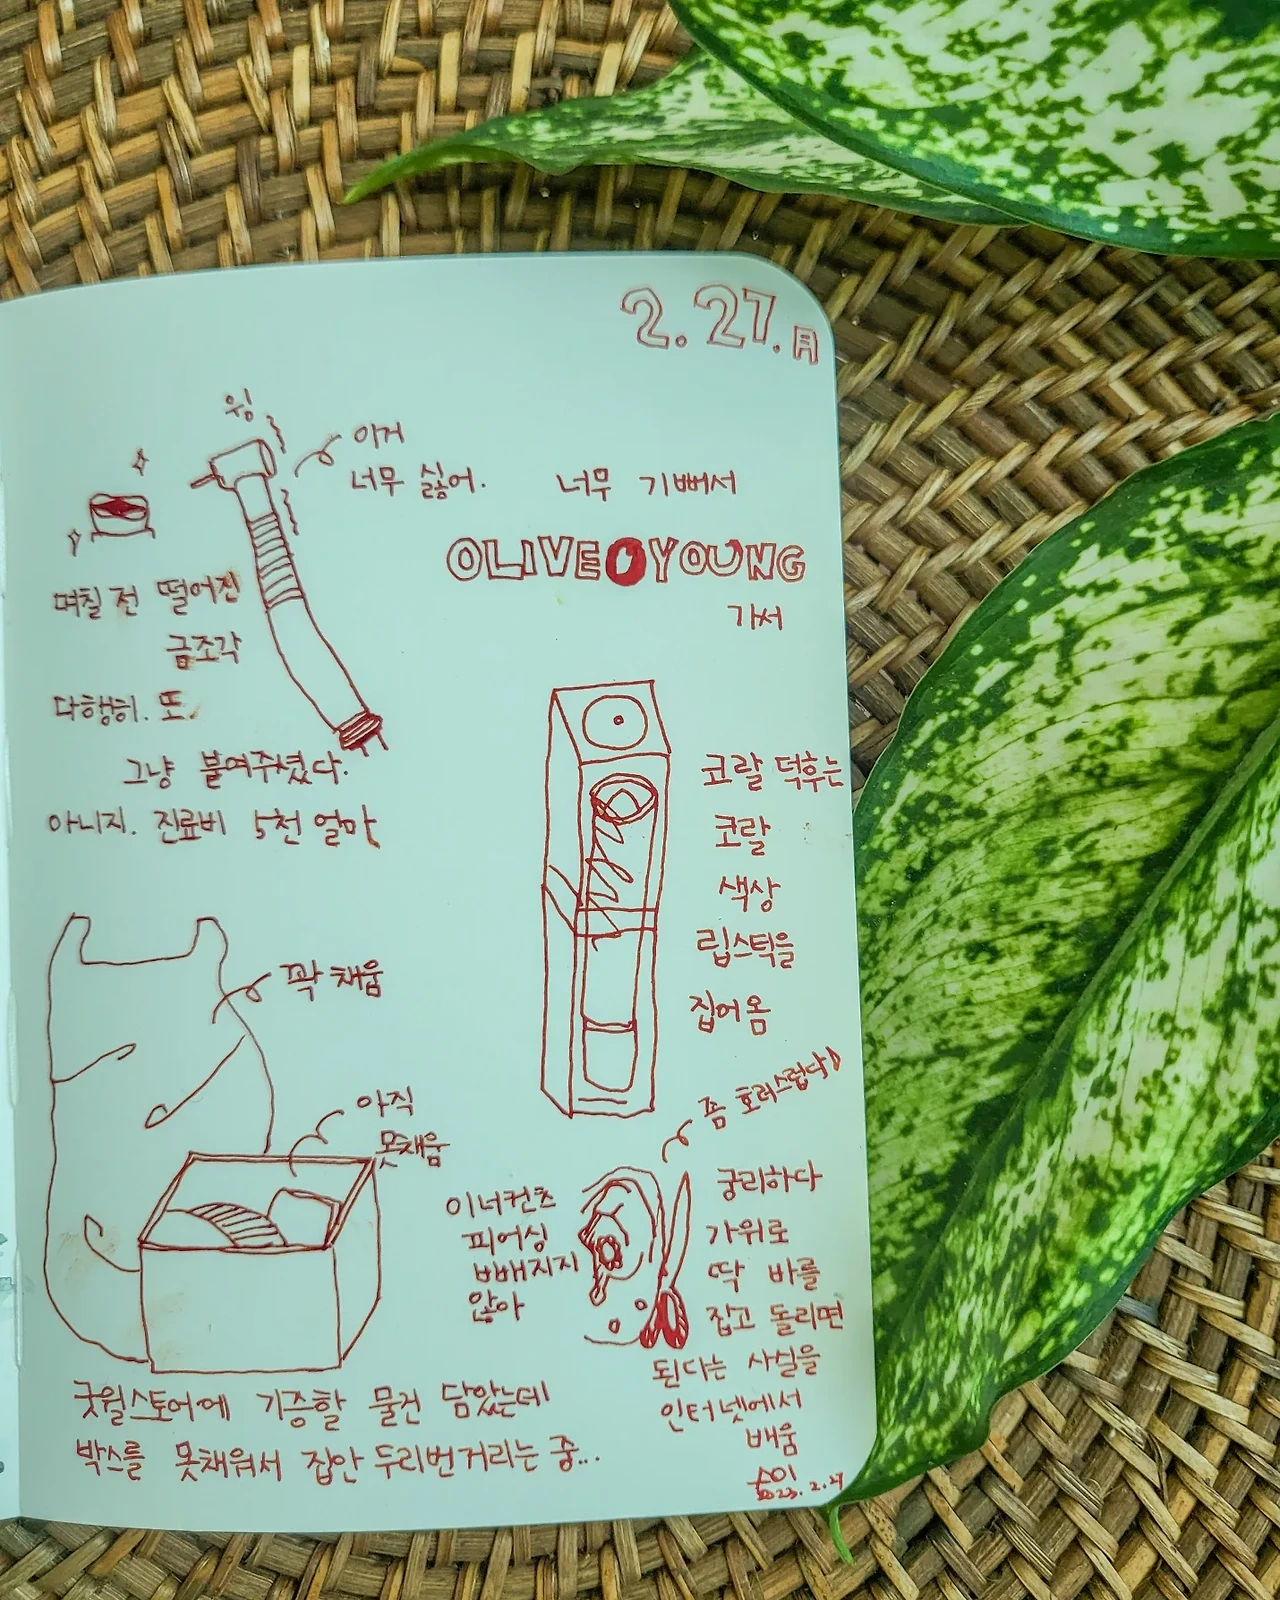 2.27.月
윙
이거
너무 싫어.
며칠 전 떨어진
금조각
다행히. 또.
그냥 붙여주셨다.
아니지. 진료비 5천 얼마
너무 기뻐서
OLIVE YOUNG
가서
코랄 덕후는
코랄
색상
립스틱을
집어옴
꽉 채움
아직
못채움
굿윌스토어에 기증할 물건 담았는데
박스를 못채워서 집안 두리번거리는 중...
좀 호러스럽다
이너컨츠
피어싱
빠지지
않아
궁리하다
가위로
딱 바를
잡고 돌리면
된다는 사실을
인터넷에서
배움
숨이
2023.2.27